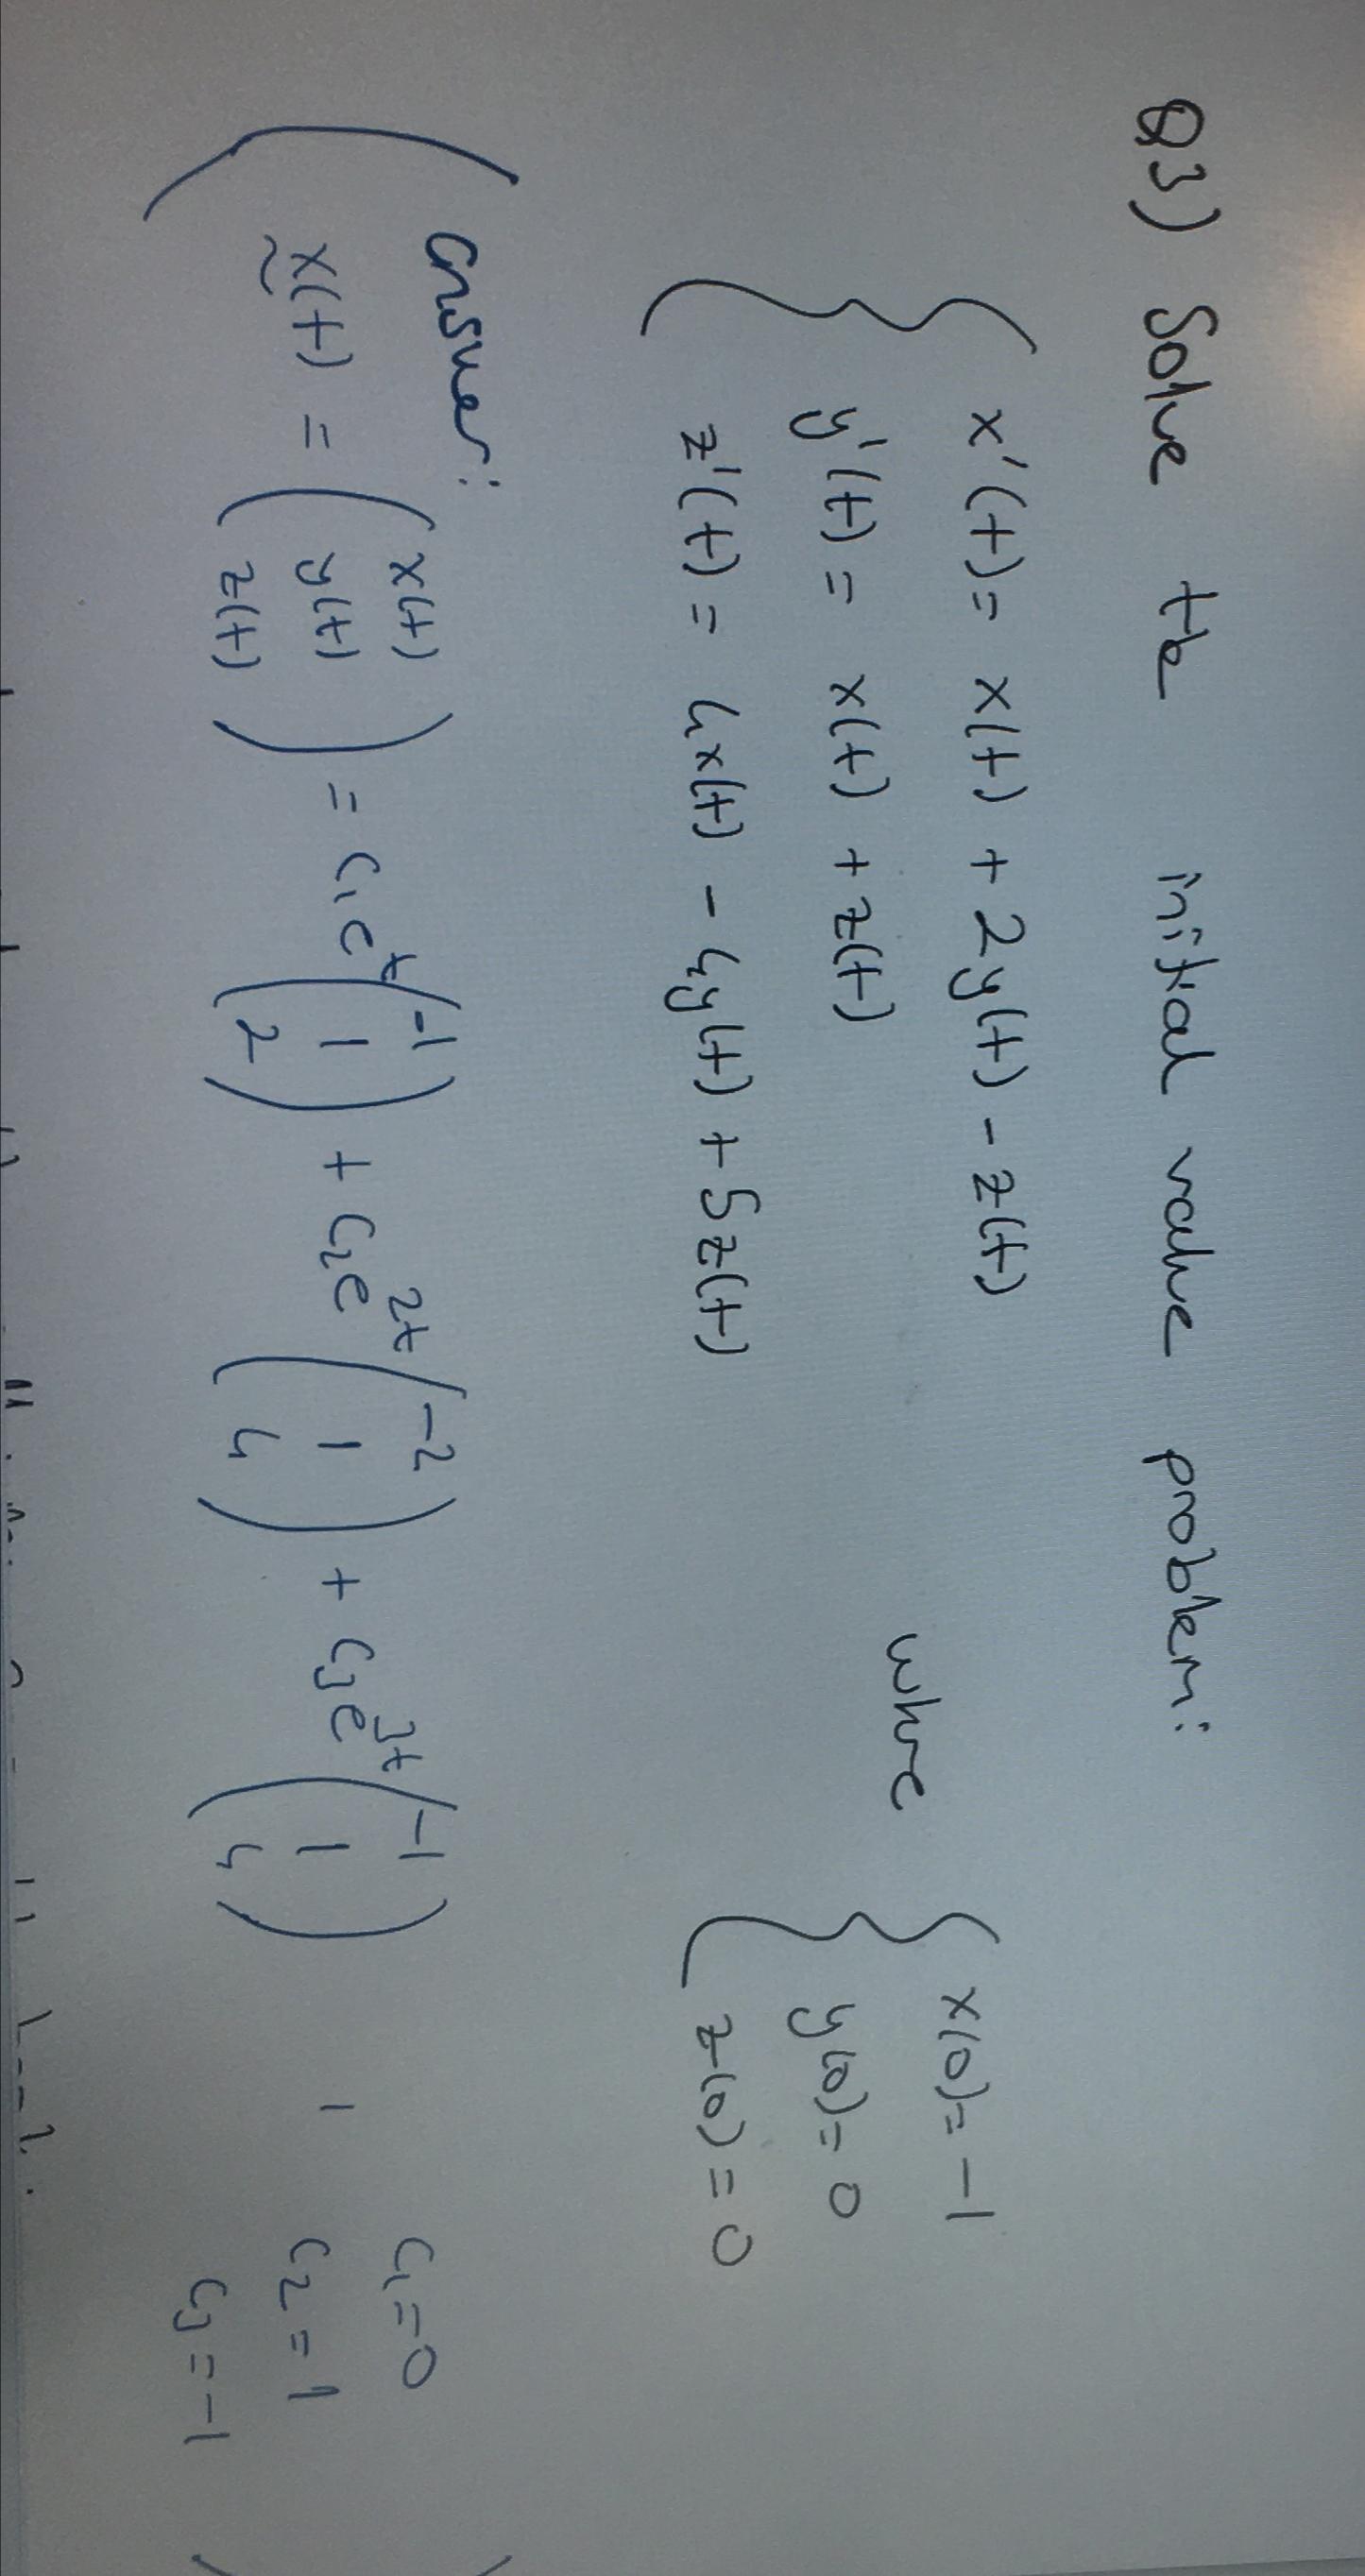 Q3) Solve the initial value problem:
x'(t) = x(t) + 2y(t) - z(t)
y'(t) = x(t) + z(t)
z'(t) = 4x(t) - 4y(t) + 5z(t)
where
x(0) = -1
y(0) = 0
z(0) = 0
(answer:
x(t) = (x(t) y(t) z(t)) = c₁e^t (-1 1 2) + c₂e^2t (-2 1 4) + c₃e^3t (-1 1 4) , c₁=0 c₂=1 c₃=-1 )